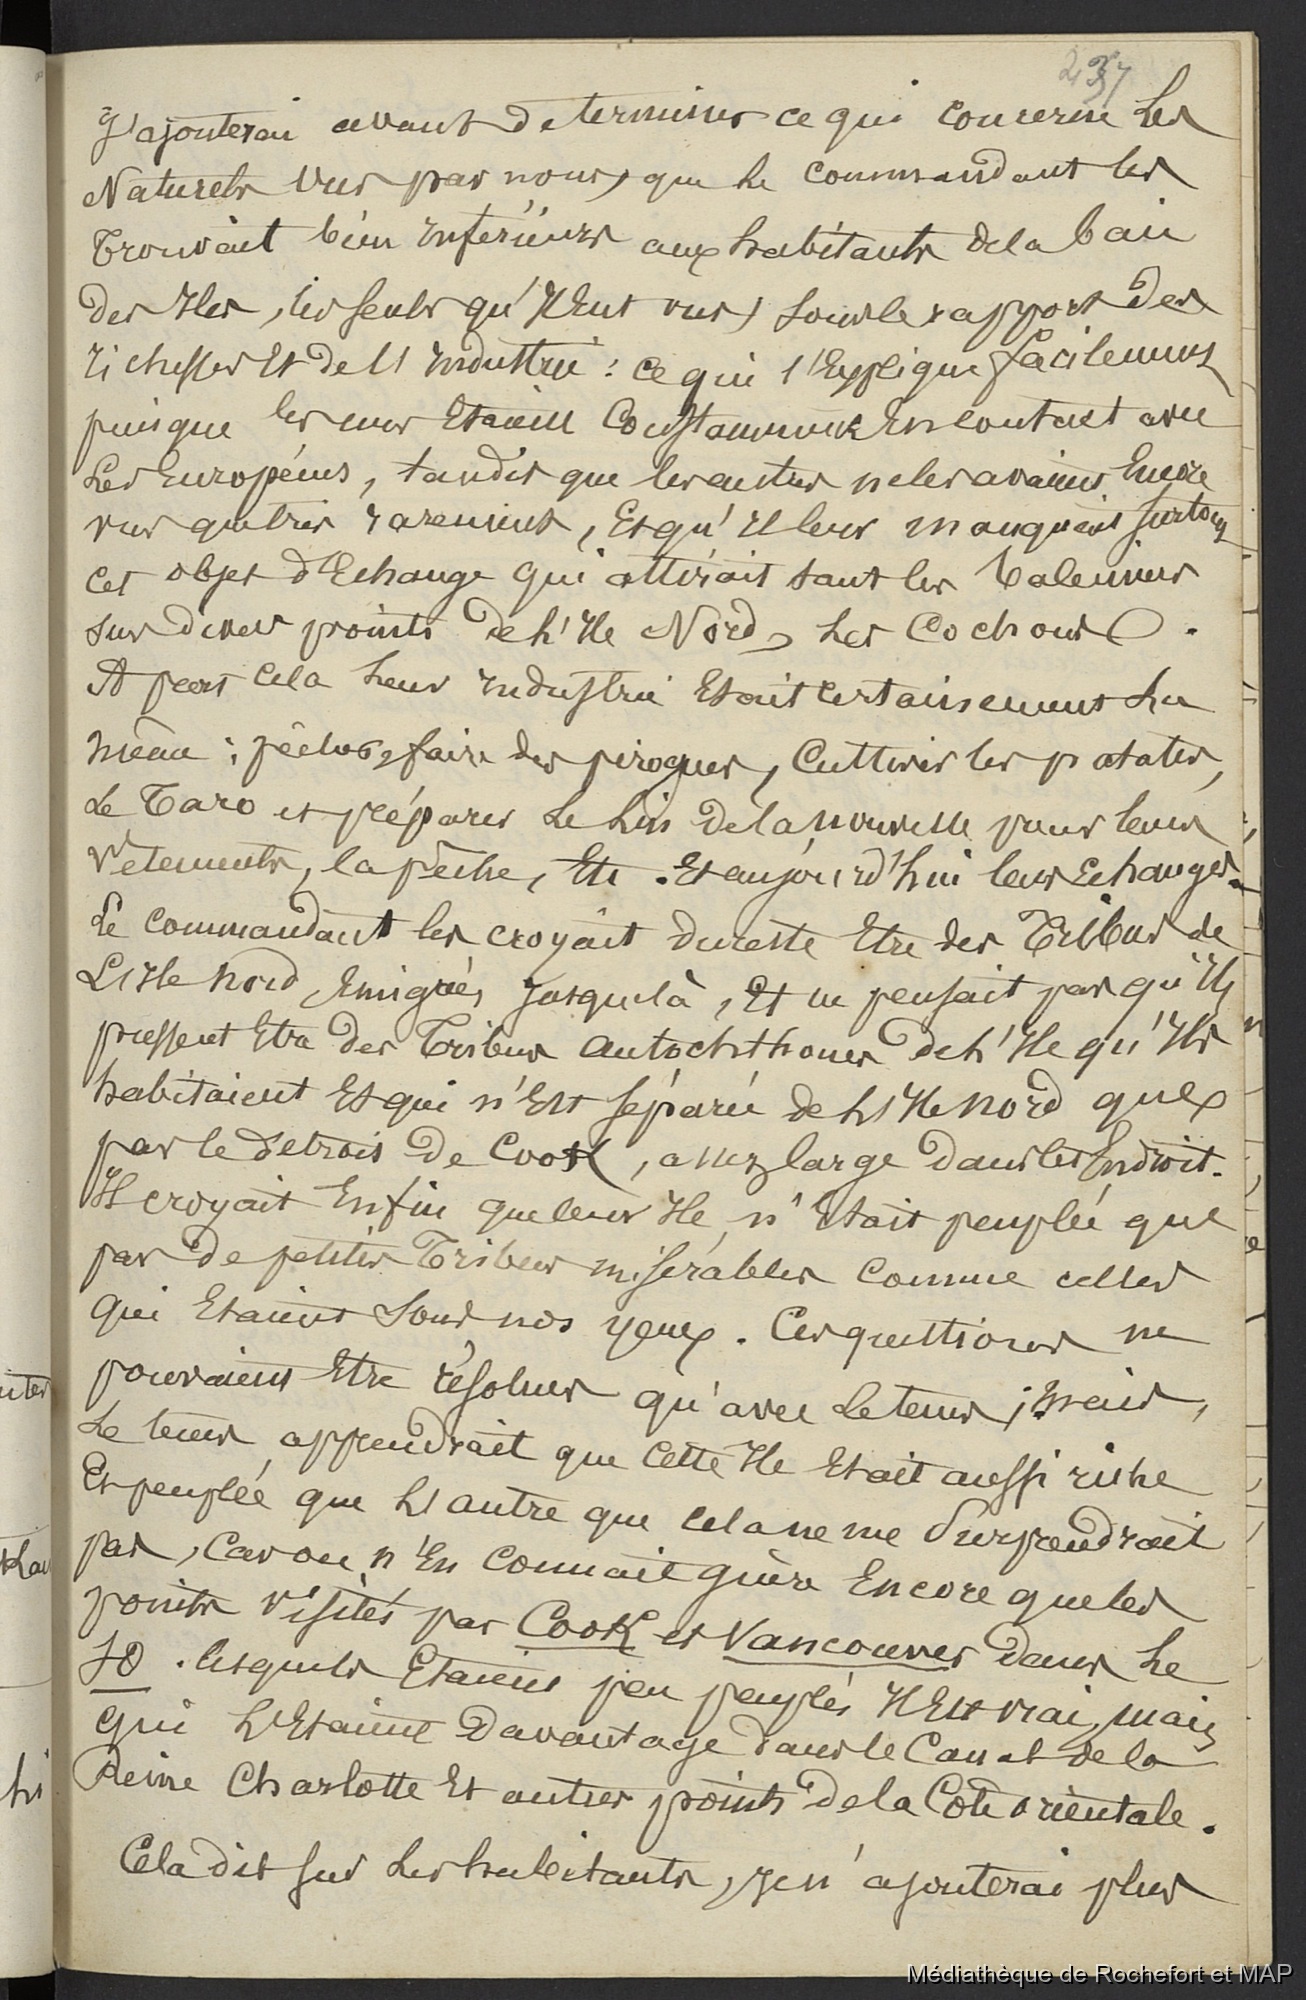 237
J'ajouterai avant de terminer ce qui concerne les
Naturels vus par nous, que le commandant les
trouvait bien inférieurs aux habitants de la baie
des Iles, les seuls qu'il eut vus, sous le rapport des
richesses et de l'industrie : ce qui s'explique facilement
puisque les uns étaient constamment en contact avec
les Européens, tandis que les autres ne les avaient encore
vus que très rarement, et qu'il leur manquait surtout
cet objet d'échange qui attirait tant les baleiniers
sur divers points de l'Ile Nord, les cochons.
A part cela leur industrie était certainement la
même : pêcher, faire des pirogues, cultiver les patates,
le Taro et préparer le lin de la nouvelle pour leurs
vêtements, la pêche, etc. Et aujourd'hui leurs échanges.
Le commandant les croyait du reste être des Tribus de
L'Ile nord, émigrées jusque là, et ne pensait pas qu'ils
pussent être des Tribus autochthones de l'Ile qu'ils
habitaient et qui n'est séparée de l'Ile nord que
par le détroit de Cook, assez large dans cet endroit.
Il croyait enfin que leur Ile n'était peuplée que
par de petites Tribus misérables comme celles
qui étaient sous nos yeux. Ces questions ne
pouvaient être résolues qu'avec le tems ; mais,
le tems apprendrait que cette Ile était aussi riche
et peuplée que l'autre que cela ne me surprendrait
pas, car on n'en connait guère encore que les
points visités par Cook et Vancouver dans le
SO. lesquels étaient peu peuplés il est vrai, mais
qui l'étaient davantage dans le Canal de la
Reine Charlotte et autres points de la Côte orientale.
Cela dit sur les habitants, je n'ajouterai plus
Médiathèque de Rochefort et MAP